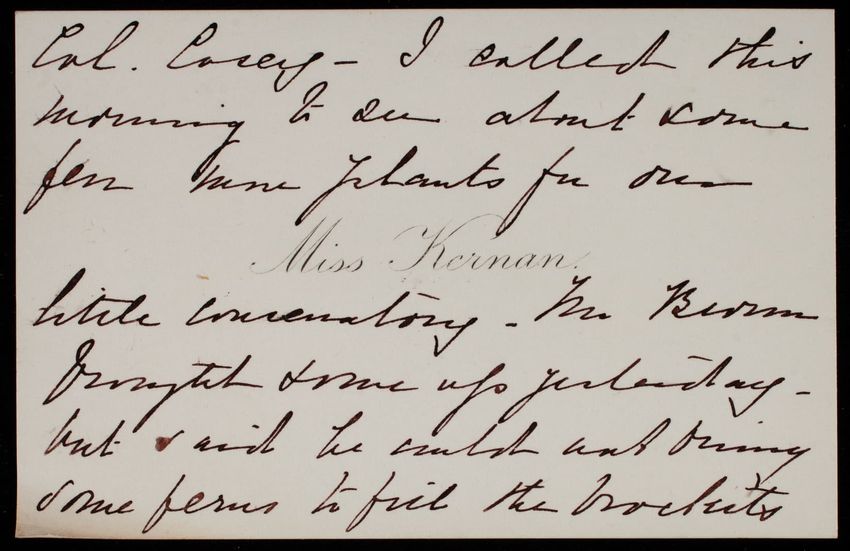 Col. Casey - I called this
morning to see about some
few more plants for our
Miss Kernan.
little conservatory - Mr Brown
brought some up yesterday -
but said he could not bring
some ferns to fill the brackets